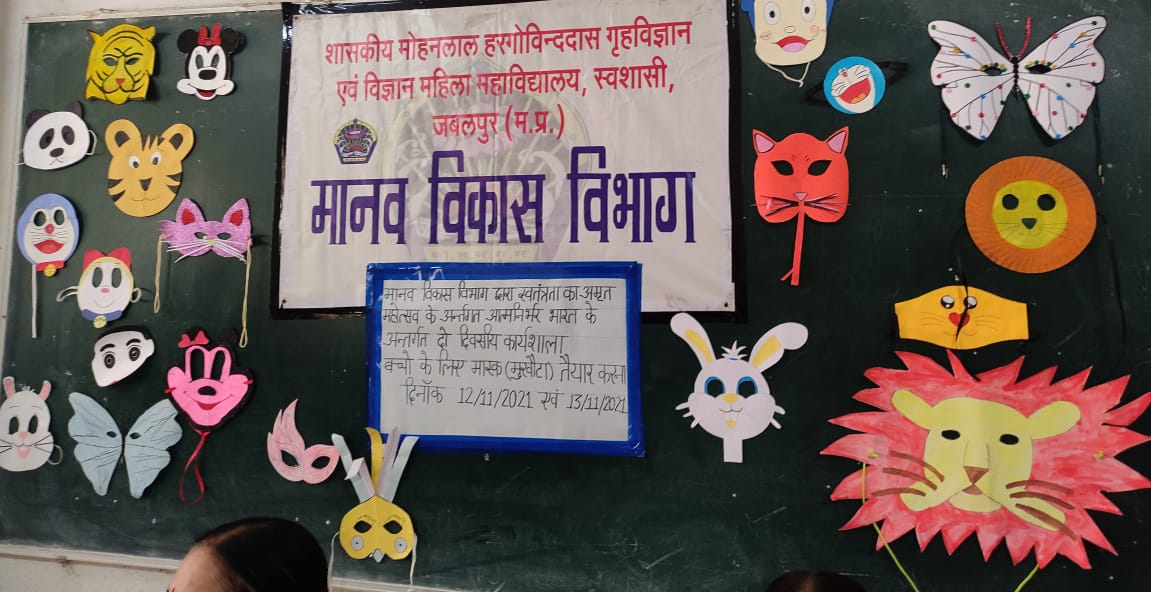 शासकीय मोहनलाल हरगोविन्ददास गृहविज्ञान
एवं विज्ञान महिला महाविद्यालय, स्वशासी,
जबलपुर (म.प्र.)
मानव विकास विभाग
मानव विकास विभाग द्वारा स्वतंत्रता का अमृत
महोत्सव के अर्न्तगत आत्मनिर्भर भारत के
अन्तर्गत दो दिवसीय कार्यशाला
बच्चो के लिए मास्क (मुखौटा) तैयार करना
दिनाँक 12/11/2021 एवं 13/11/2021